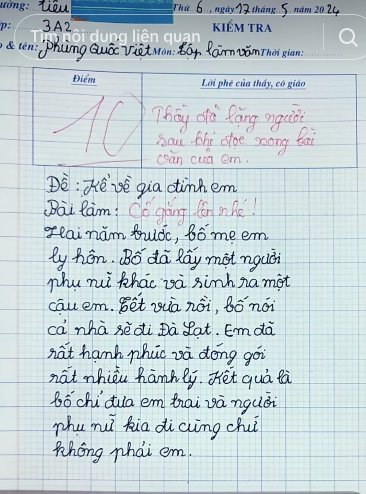 ường: tiêu
Thứ 6, ngày 17 tháng 5 năm 2024
ớp: 3A2
KIỂM TRA
Tìm nội dung liên quan
ọ & tên: Phùng Quốc Việt Môn: Tập làm văn Thời gian:
Điểm
Lời phê của thầy, cô giáo
10
Thầy đã lặng người
sau khi đọc xong bài
văn của em.
Đề: Kể về gia đình em
Bài làm: Cố gắng lên nhé!
Hai năm trước, bố mẹ em
ly hôn. Bố đã lấy một người
phụ nữ khác và sinh ra một
cậu em. Tết vừa rồi, bố nói
cả nhà sẽ đi Đà Lạt. Em đã
rất hạnh phúc và đóng gói
rất nhiều hành lý. Kết quả là
bố chỉ đưa em trai và người
phụ nữ kia đi cùng chứ
không phải em.